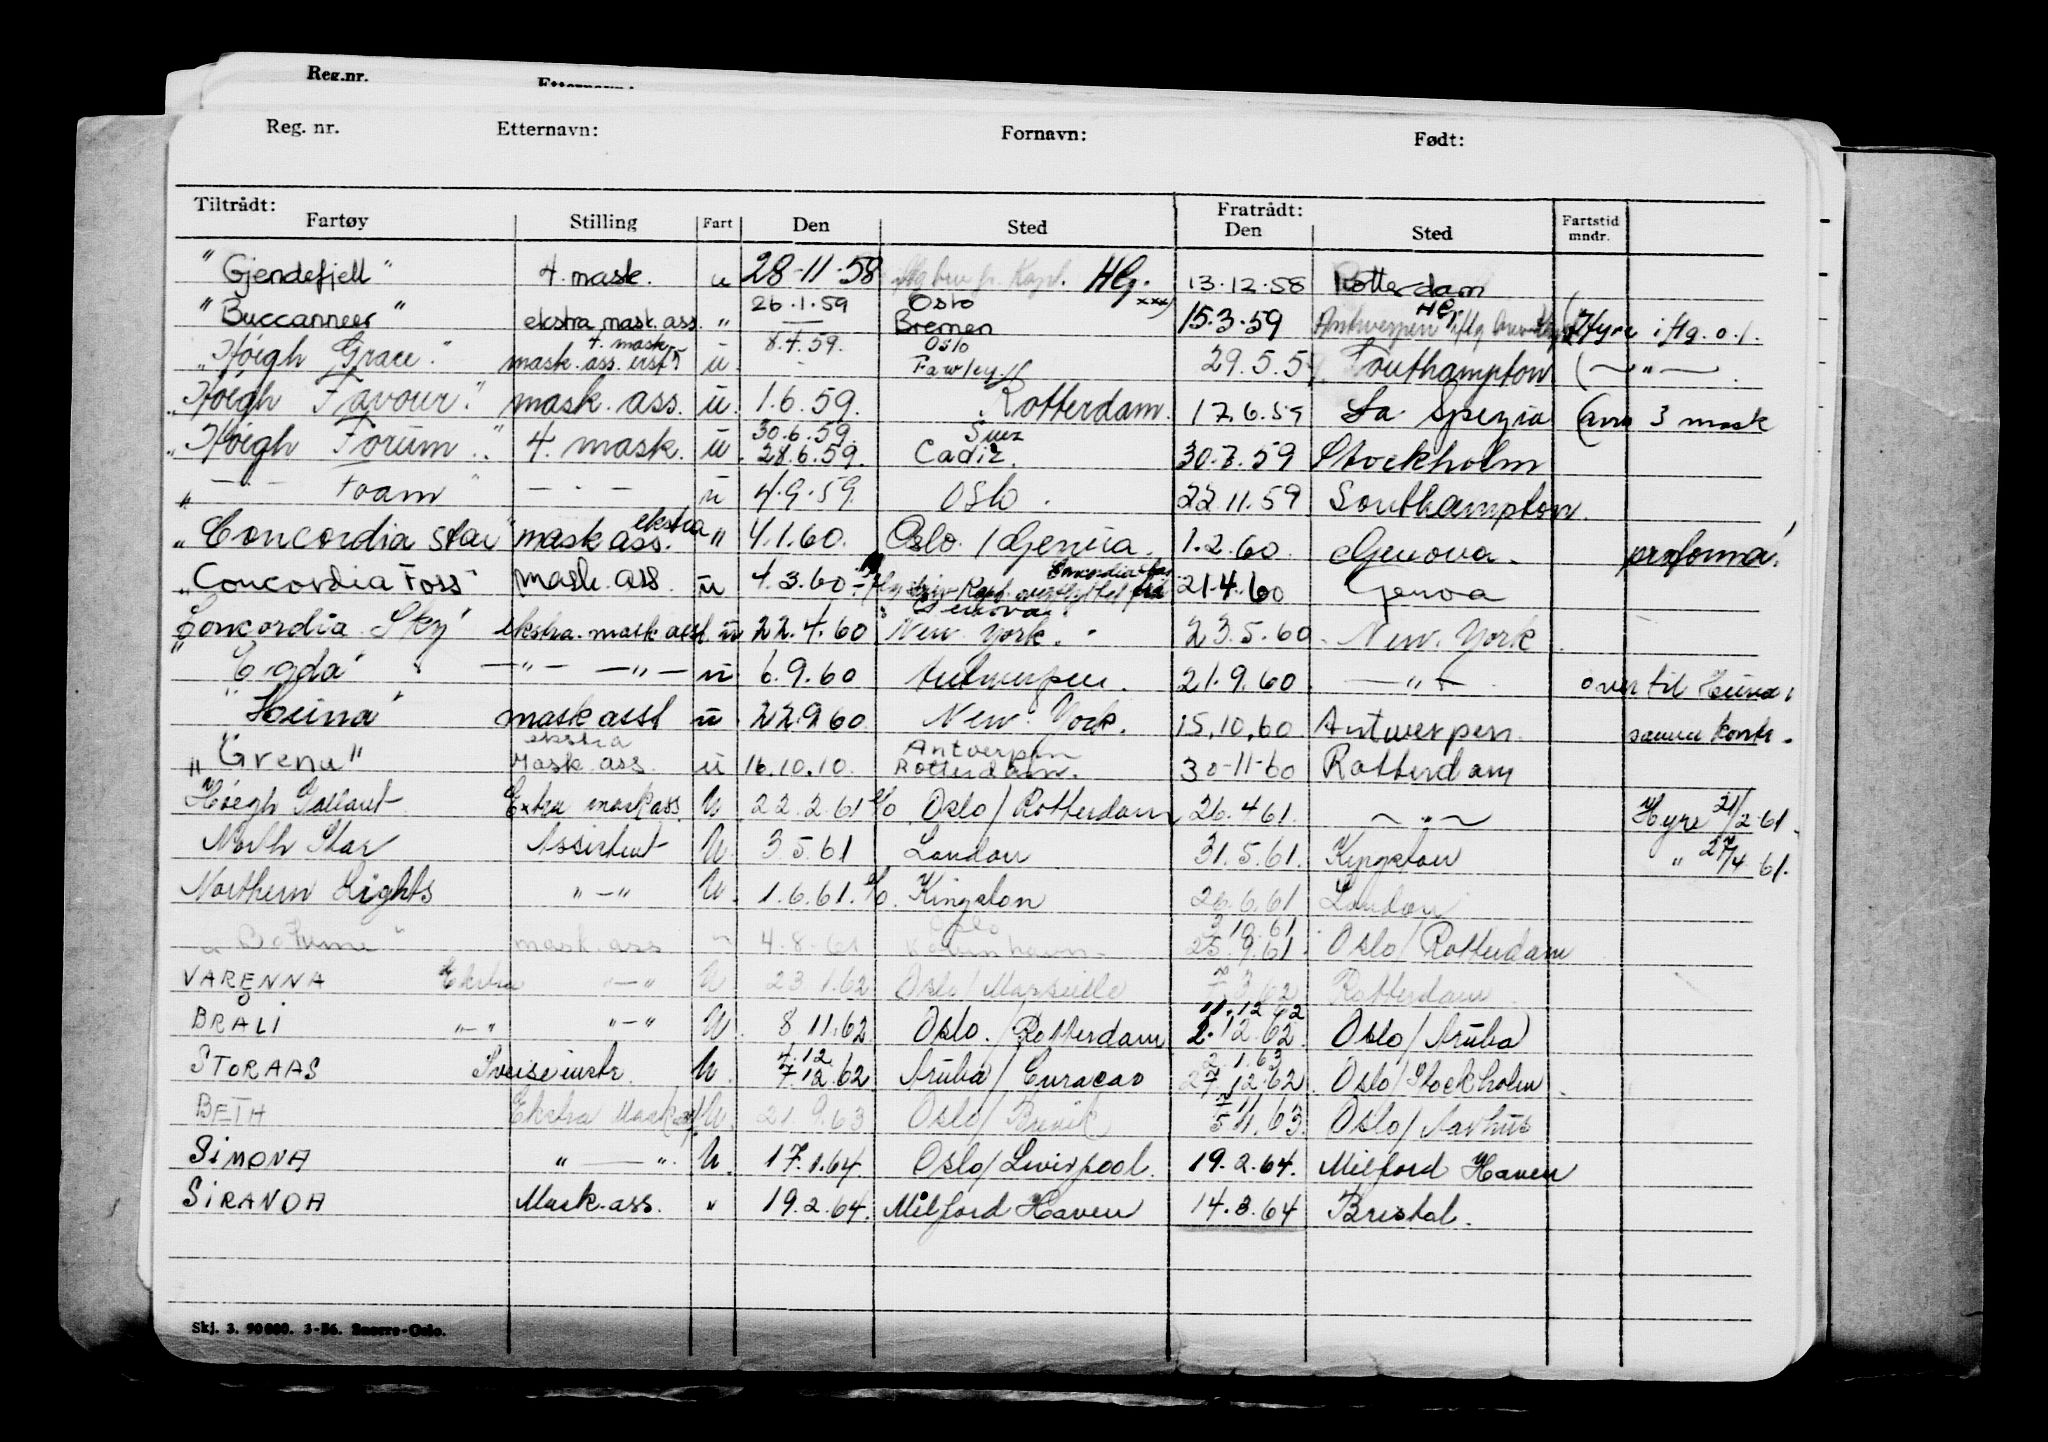 Reg.nr. Etternavn:
Reg. nr. Etternavn: Fornavn: Født:
Tiltrådt: Fratrådt:
Fartøy Stilling Fart Den Sted Den Sted Fartstid mndr.
"Gjendefjell" 4. mask. u 28-11-58 Kapt. HG. 13.12-58 Rotterdam
26.1.59 Oslo xxx)
"Buccanneer" ekstra mask. ass. " Bremen 15.3.59 Antwerpen HG Hyre iflg. o.l.
4. mask 8.4.59. Oslo
"Høegh Grace" mask. ass. u - Fawley 29.5.59. Southampton (—"—.
"Høegh Favour" mask. ass. u. 1.6.59. Rotterdam. 17.6.59 La Spezia (ans 3 mask
30.6.59. Suez
"Høegh Forum" 4. mask. u. 28.6.59. Cadiz. 30.7.59 Stockholm
" -.- Foam " -.- u 4.9.59. Oslo. 22.11.59 Southampton.
ekstra
"Concordia Star" mask ass. " 4.1.60. Oslo / Genua. 1.2.60. Genova. proforma!
"Concordia Foss" mask. ass. u 4.3.60 Kapt. overflyttet fra Concordia Star 21.4.60 Genoa
Genova
"Concordia Sky" ekstra. mask asst u 22.4.60 New York. 23.5.60. New. York.
"Egda" —"— —"— u 6.9.60 Antwerpen. 21.9.60. —"— over til Heina
"Heina" mask asst u. 22.9.60 New York. 15.10.60 Antwerpen. samme kontr.
ekstra Antwerpen
"Grena" Mask. ass. u 16.10.10. Rotterdam. 30-11-60 Rotterdam
Høegh Gallant Extra mask ass. U 22.2.61 Oslo / Rotterdam 26.4.61. —"— Hyre 21/2.61.
North Star Assistent U. 3.5.61 London 31.5.61. Kingston " 27/4 61.
Northern Lights "-" U. 1.6.61. Kingston 26.6.61 London
Oslo 2.10.61
mask. ass " 4.8.61 København. 25.9.61. Oslo / Rotterdam
VARENNA Ekstra "-" U 23.1.62 Oslo / Marseille 3.62 Rotterdam.
11.12.62
BRALI "-" "-" U. 8.11.62 Oslo. / Rotterdam 2.12.62. Oslo / Aruba
4.12 2.1.63
STORAAS Sveiseinstr. U. 7.12.62 Aruba / Curacao 27.12.62. Oslo / Stockholm.
BETH Ekstra Mask ass. U. 21.9.63 Oslo / Brevik 5.11.63. Oslo / Aarhus
SIMONA "—". U. 17.1.64. Oslo / Liverpool. 19.2.64. Milford Haven
SIRANDA Mask. ass. " 19.2.64. Milford Haven 14.3.64 Bristol.
Skj. 3. 90 000. 3-56. Snorre-Oslo.